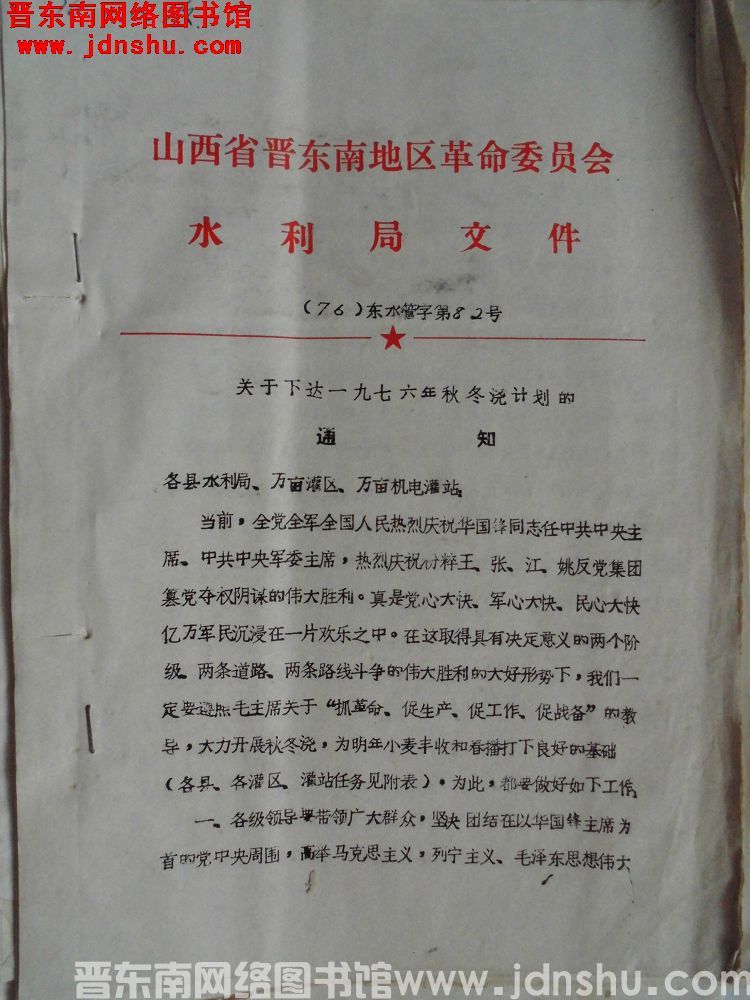 晋东南网络图书馆
www.jdnshu.com
山西省晋东南地区革命委员会
水利局文件
(76)东水管字第82号
关于下达一九七六年秋冬浇计划的
通知
各县水利局、万亩灌区、万亩机电灌站。
当前，全党全军全国人民热烈庆祝华国锋同志任中共中央主
席、中共中央军委主席，热烈庆祝粉粹王、张、江、姚反党集团
篡党夺权阴谋的伟大胜利。真是党心大快、军心大快、民心大快
亿万军民沉浸在一片欢乐之中。在这取得具有决定意义的两个阶
级、两条道路、两条路线斗争的伟大胜利的大好形势下，我们一
定要遵照毛主席关于“抓革命、促生产、促工作、促战备”的教
导，大力开展秋冬浇，为明年小麦丰收和春播打下良好的基础
（各县、各灌区、灌站任务见附表）。为此，都要做好如下工作。
一、各级领导要带领广大群众，坚决团结在以华国锋主席为
首的党中央周围，高举马克思主义，列宁主义、毛泽东思想伟大
晋东南网络图书馆www.jdnshu.com